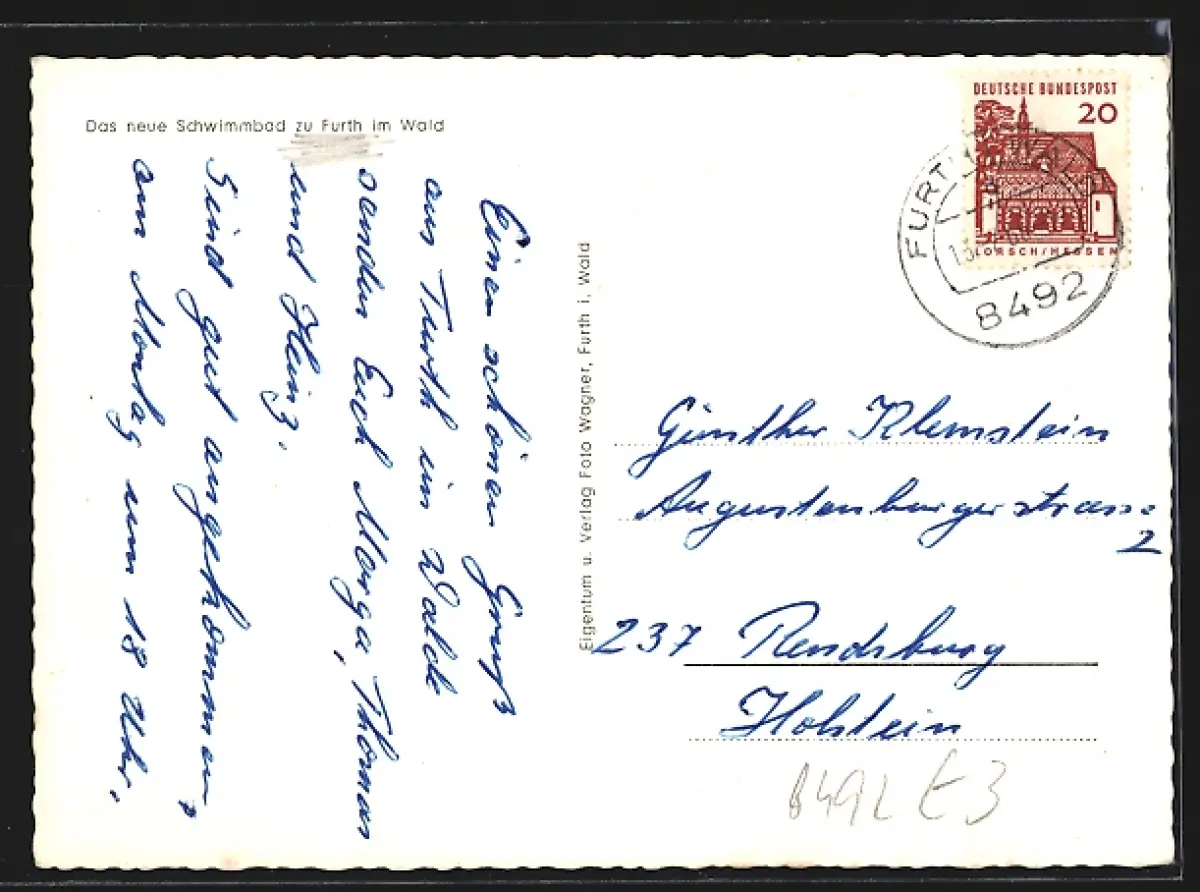 Das neue Schwimmbad zu Furth im Wald
Einen schönen Gruß
aus Furth im Walde
senden Euch Marga, Thomas
und Heinz.
Sind gut angekommen,
am Montag um 18 Uhr.
Eigentum u. Verlag Foto Wagner, Furth i. Wald
DEUTSCHE BUNDESPOST
20
LORSCH/HESSEN
FURTH
8492
Günther Klemstein
Augustenburgerstrasse
2
237 Rendsburg
Holstein
8492 E 3